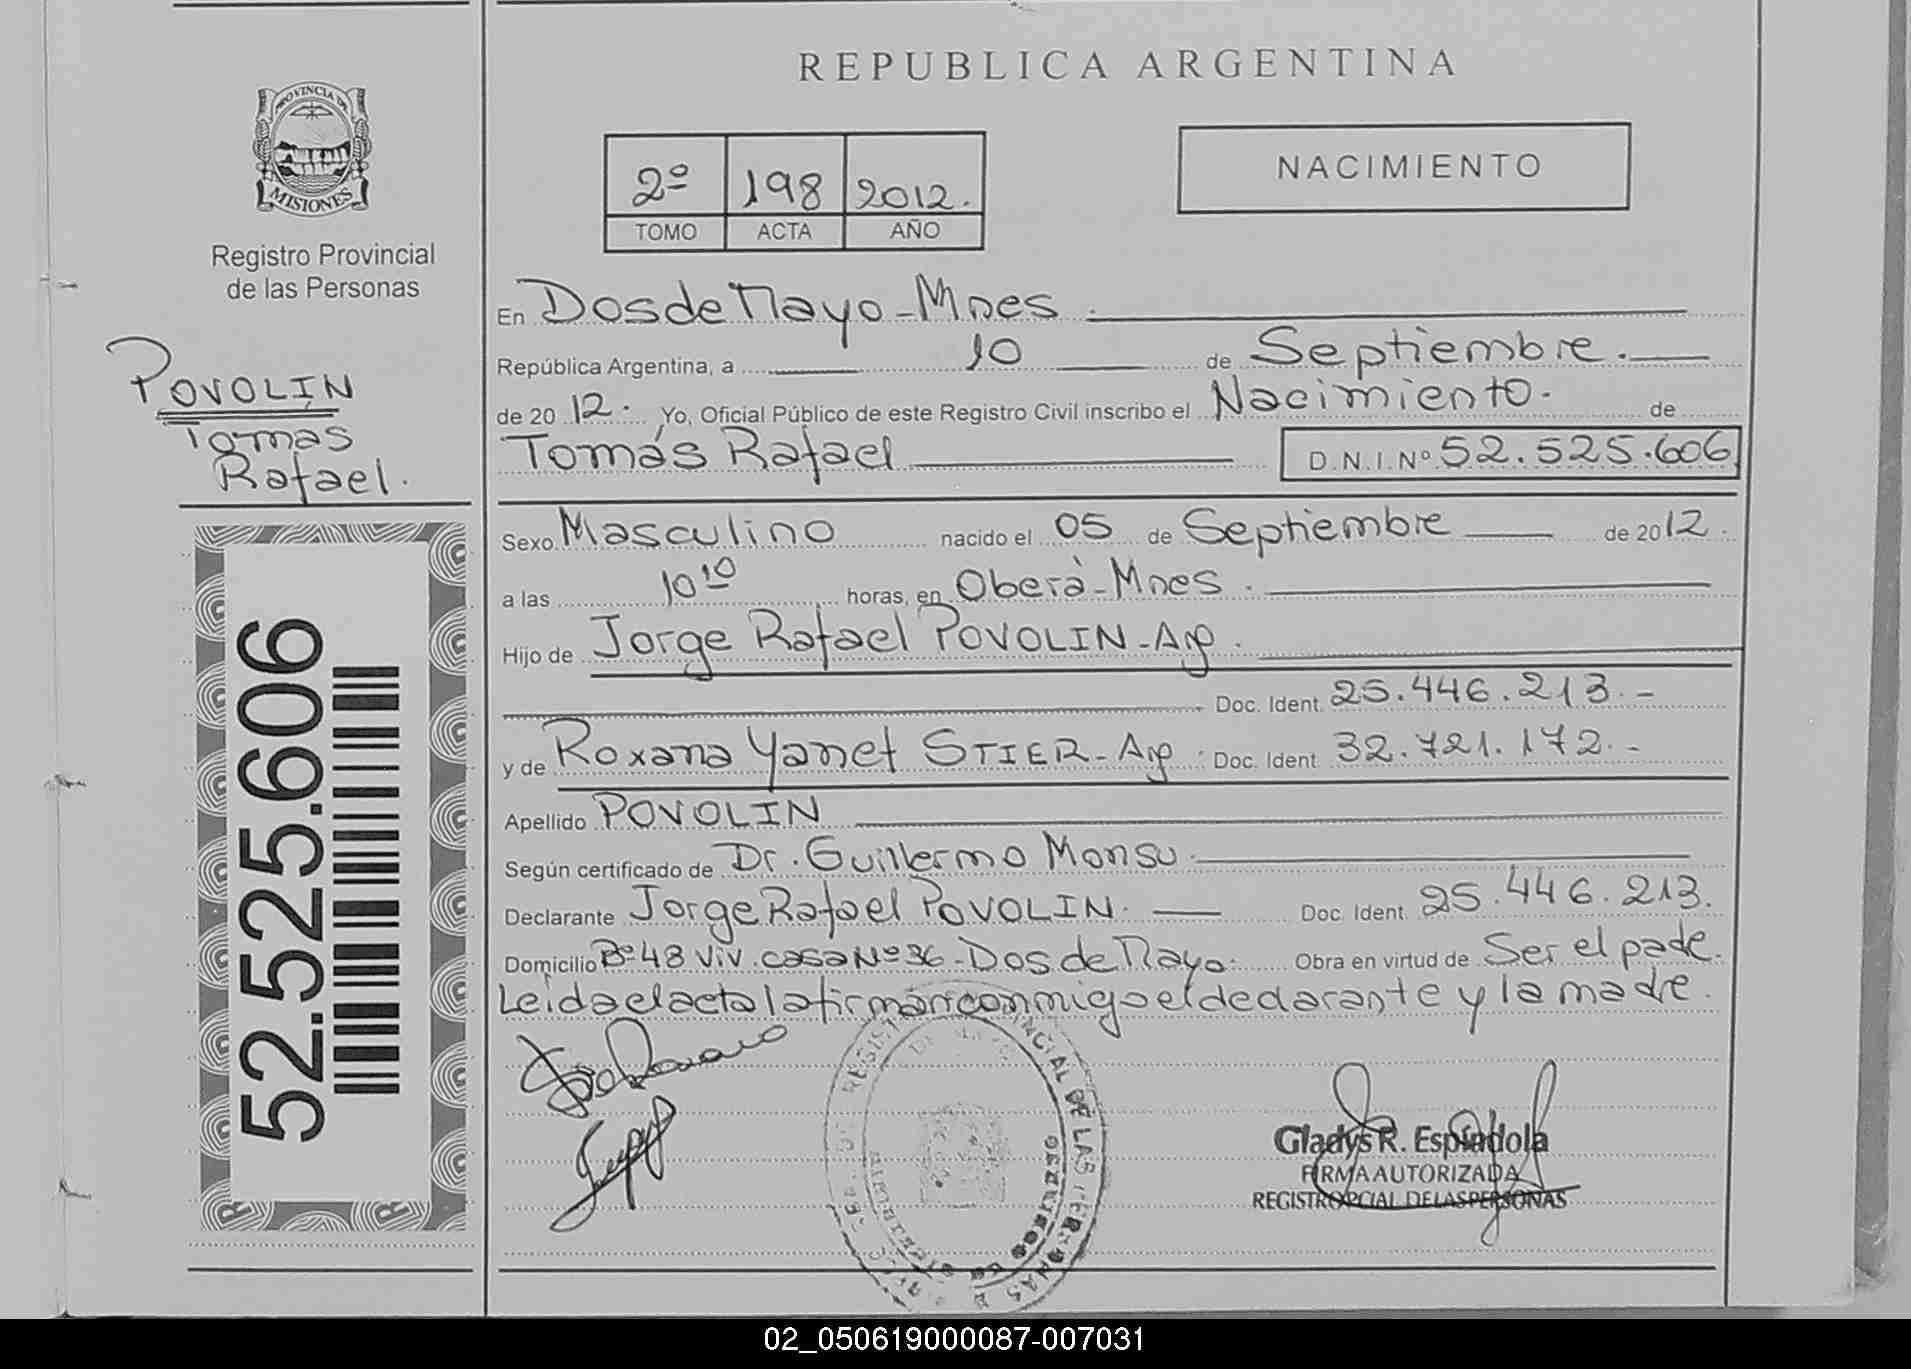 PROVINCIA DE
MISIONES
Registro Provincial
de las Personas
POVOLIN
Tomás
Rafael.
52.525.606
REPUBLICA ARGENTINA
2º 198 2012.
TOMO ACTA AÑO
NACIMIENTO
En Dos de Mayo-Mnes.
República Argentina, a 10 de Septiembre.
de 20 12. Yo, Oficial Público de este Registro Civil inscribo el Nacimiento. de
Tomás Rafael D.N.I.Nº 52.525.606
Sexo Masculino nacido el 05 de Septiembre de 2012.
a las 10 10 horas, en Oberá-Mnes.
Hijo de Jorge Rafael POVOLIN-Arg.
Doc. Ident. 25.446.213.-
y de Roxana Yanet STIER-Arg. Doc. Ident. 32.721.172.-
Apellido POVOLIN
Según certificado de Dr. Guillermo Monsu.
Declarante Jorge Rafael POVOLIN. Doc. Ident. 25.446.213.
Domicilio Bº 48 Viv. casa Nº 36-Dos de Mayo. Obra en virtud de Ser el padre.
Leída el acta la firman conmigo el declarante y la madre.
Gladys R. Espíndola
FIRMA AUTORIZADA
REGISTRO PCIAL DE LAS PERSONAS
02_050619000087-007031